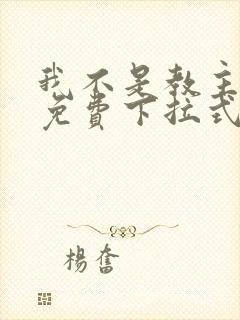 我不是教主
免费下拉式
杨奮